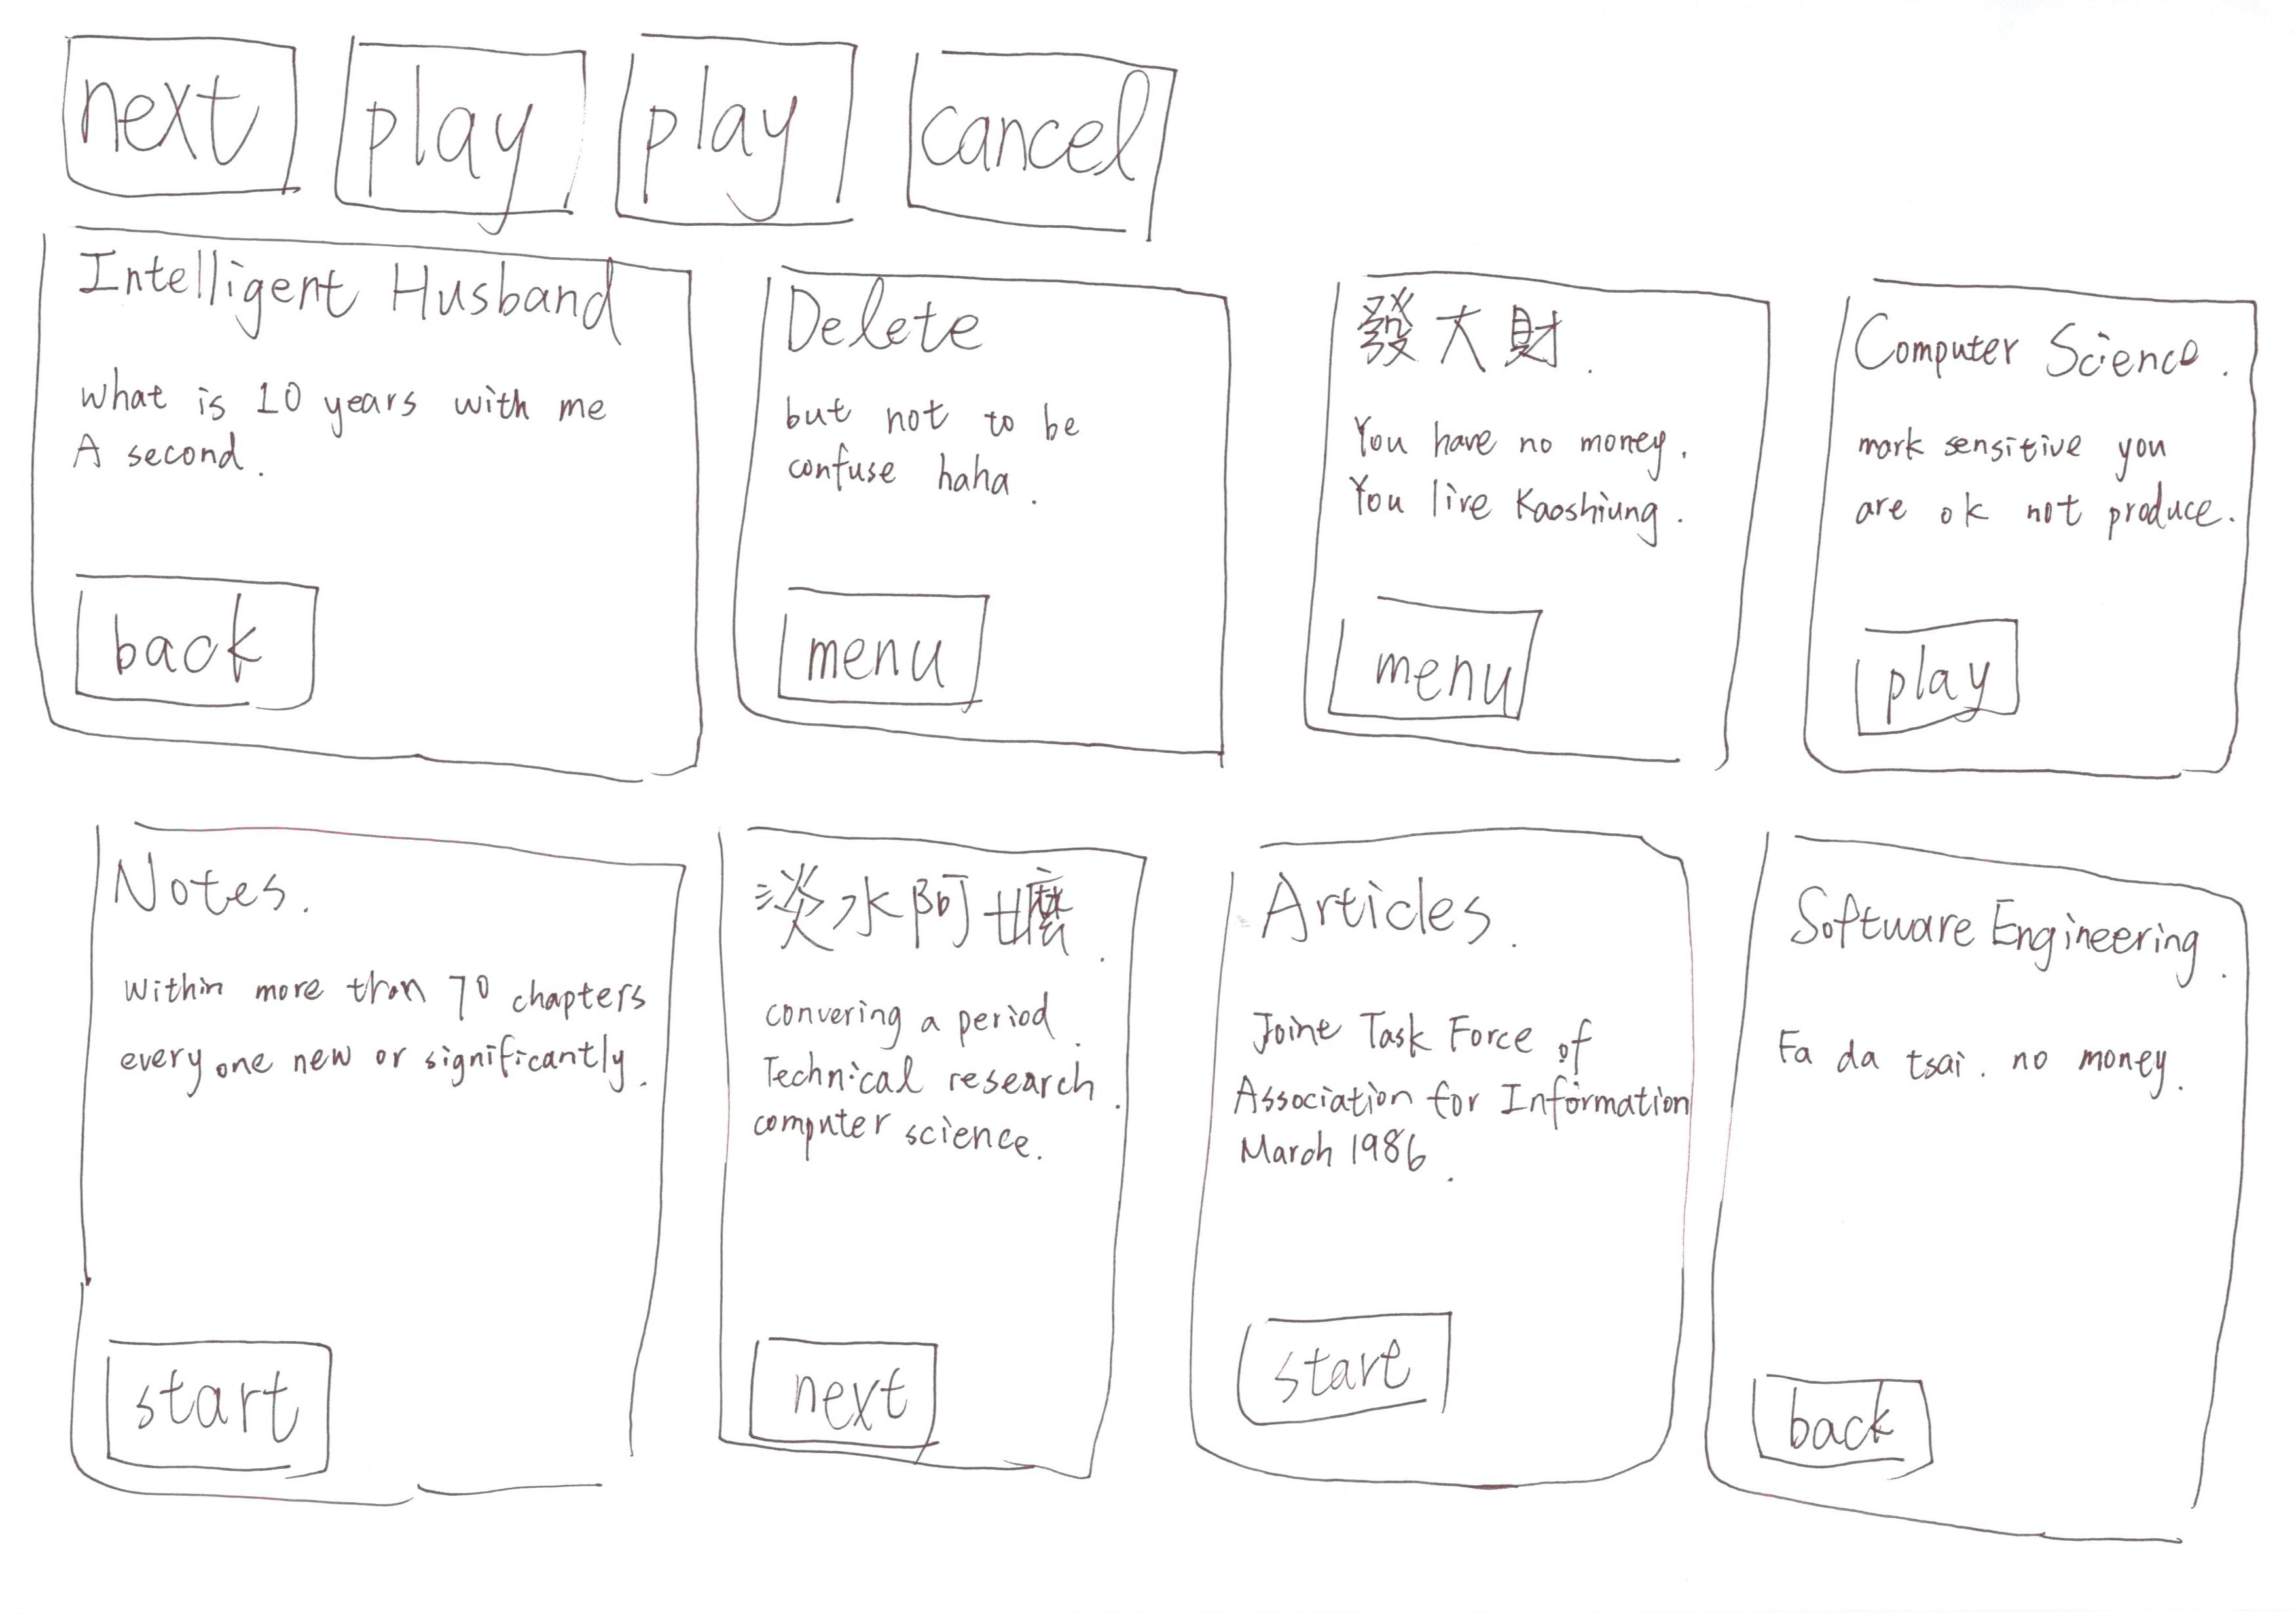 next
play
play
cancel
Intelligent Husband
what is 10 years with me
A second.
back
Delete
but not to be
confuse haha.
menu
發大財.
You have no money.
You live Kaoshiung.
menu
Computer Science.
mark sensitive you
are ok not produce.
play
Notes.
Within more than 70 chapters
every one new or significantly.
start
淡水阿嬤.
convering a period.
Technical research.
computer science.
next
Articles.
Joine Task Force of
Association for Information
March 1986.
start
Software Engineering.
Fa da tsai. no money.
back